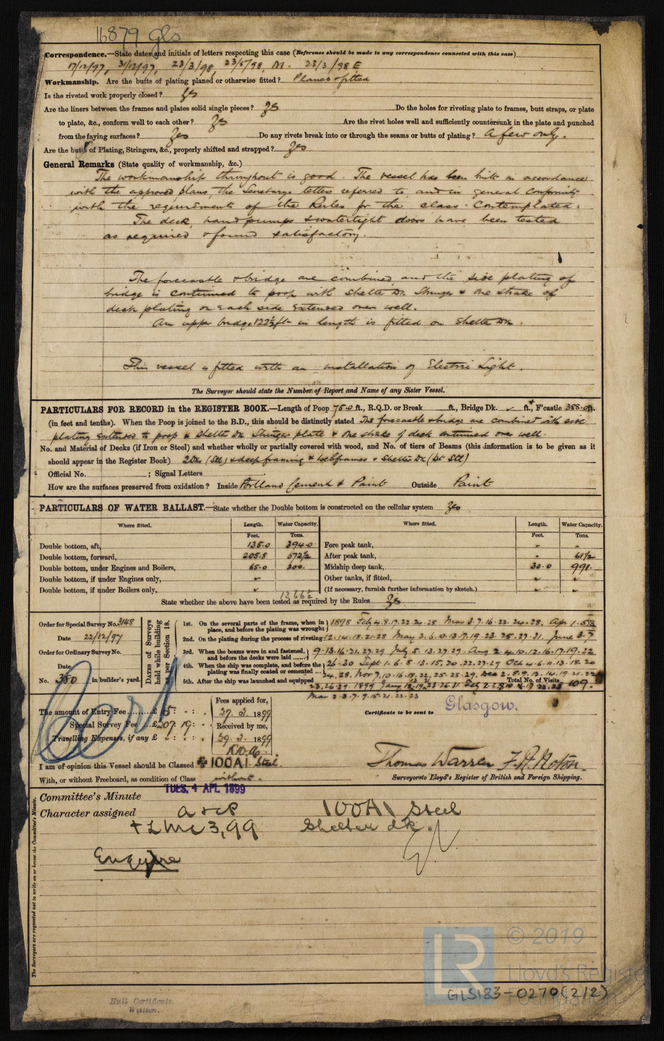 16879 gls
Correspondence.—State dates and initials of letters respecting this case (Reference should be made in any correspondence connected with this case)
17/12/97, 31/12/97, 23/3/98, 23/5/98, M. 22/3/98 E
Workmanship. Are the butts of plating planed or otherwise fitted? Planed & fitted
Is the riveted work properly closed? Yes
Are the liners between the frames and plates solid single pieces? Yes Do the holes for riveting plate to frames, butt straps, or plate
to plate, &c., conform well to each other? Yes Are the rivet holes well and sufficiently countersunk in the plate and punched
from the faying surfaces? Yes Do any rivets break into or through the seams or butts of plating? A few only.
Are the butts of Plating, Stringers, &c., properly shifted and strapped? Yes
General Remarks (State quality of workmanship, &c.)
The workmanship throughout is good. The vessel has been built in accordance
with the approved plans the Secretary's letters referred to and in general conformity
with the requirements of the Rules for the class contemplated.
The deck, hand pumps & watertight doors have been tested
as required & found satisfactory.
The forecastle & bridge are combined and the side plating of
bridge is continued to poop with shelter Dk. Stringer & one strake of
deck plating on each side extended over well.
An upper bridge 122½ ft in length is fitted on Shelter Dk.
This vessel is fitted with an installation of Electric Light.
The Surveyor should state the Number of Report and Name of any Sister Vessel.
PARTICULARS FOR RECORD in the REGISTER BOOK.—Length of Poop 75.0 ft., R.Q.D. or Break ft., Bridge Dk. ft., F'castle 388.0 ft.
(in feet and tenths). When the Poop is joined to the B.D., this should be distinctly stated The forecastle & bridge are combined with side
plating extended to poop & Shelter Dk Stringer plate & one strake of deck continued over well
No. and Material of Decks (if Iron or Steel) and whether wholly or partially covered with wood, and No. of tiers of Beams (this information is to be given as it
should appear in the Register Book) 2 Dks (Stl) & deep framing & web frames & Shelter Dk (pt Stl)
Official No. ; Signal Letters
How are the surfaces preserved from oxidation? Inside Portland Cement & Paint Outside Paint
PARTICULARS OF WATER BALLAST.—State whether the Double bottom is constructed on the cellular system Yes
Where fitted. Length. Water Capacity. Where fitted. Length. Water Capacity.
Feet. Tons. Feet. Tons.
Double bottom, aft, 135.0 394.0 Fore peak tank, - -
Double bottom, forward, 205.8 572½ After peak tank, - 61½
Double bottom, under Engines and Boilers, 65.0 300. Midship deep tank, 30.0 991.
Double bottom, if under Engines only, - Other tanks, if fitted, - -
Double bottom, if under Boilers only, - (If necessary, furnish further information by sketch.)
State whether the above have been tested as required by the Rules Yes
Order for Special Survey No. 3148
Date 22/12/97
Order for Ordinary Survey No.
Date
No. 350 in builder's yard.
DATES of Surveys held while building as per Section 18.
1st. On the several parts of the frame, when in place, and before the plating was wrought
2nd. On the plating during the process of riveting
3rd. When the beams were in and fastened, and before the decks were laid
4th. When the ship was complete, and before the plating was finally coated or cemented
5th. After the ship was launched and equipped
Total No. of Visits 109.
The amount of Entry Fee £5 : :
Special Survey Fee £207 : 19 :
Travelling Expenses, if any £ : :
Fees applied for,
29. 3. 1899
Received by me,
29. 3. 1899
Certificate to be sent to Glasgow.
I am of opinion this Vessel should be Classed ✠ 100A1 Steel
With, or without Freeboard, as condition of Class without.
Thomas Warren
Surveyors to Lloyd's Register of British and Foreign Shipping.
TUES. 4 APL 1899
Committee's Minute
Character assigned 100A1 Steel
+ LMC 3,99 Shelter dk.
The Surveyors are requested not to write on or below the Committee's Minute.
Hull Certificate
Written.
LR
© 2019
Lloyd's Register
GLS183-0270 (2/2)